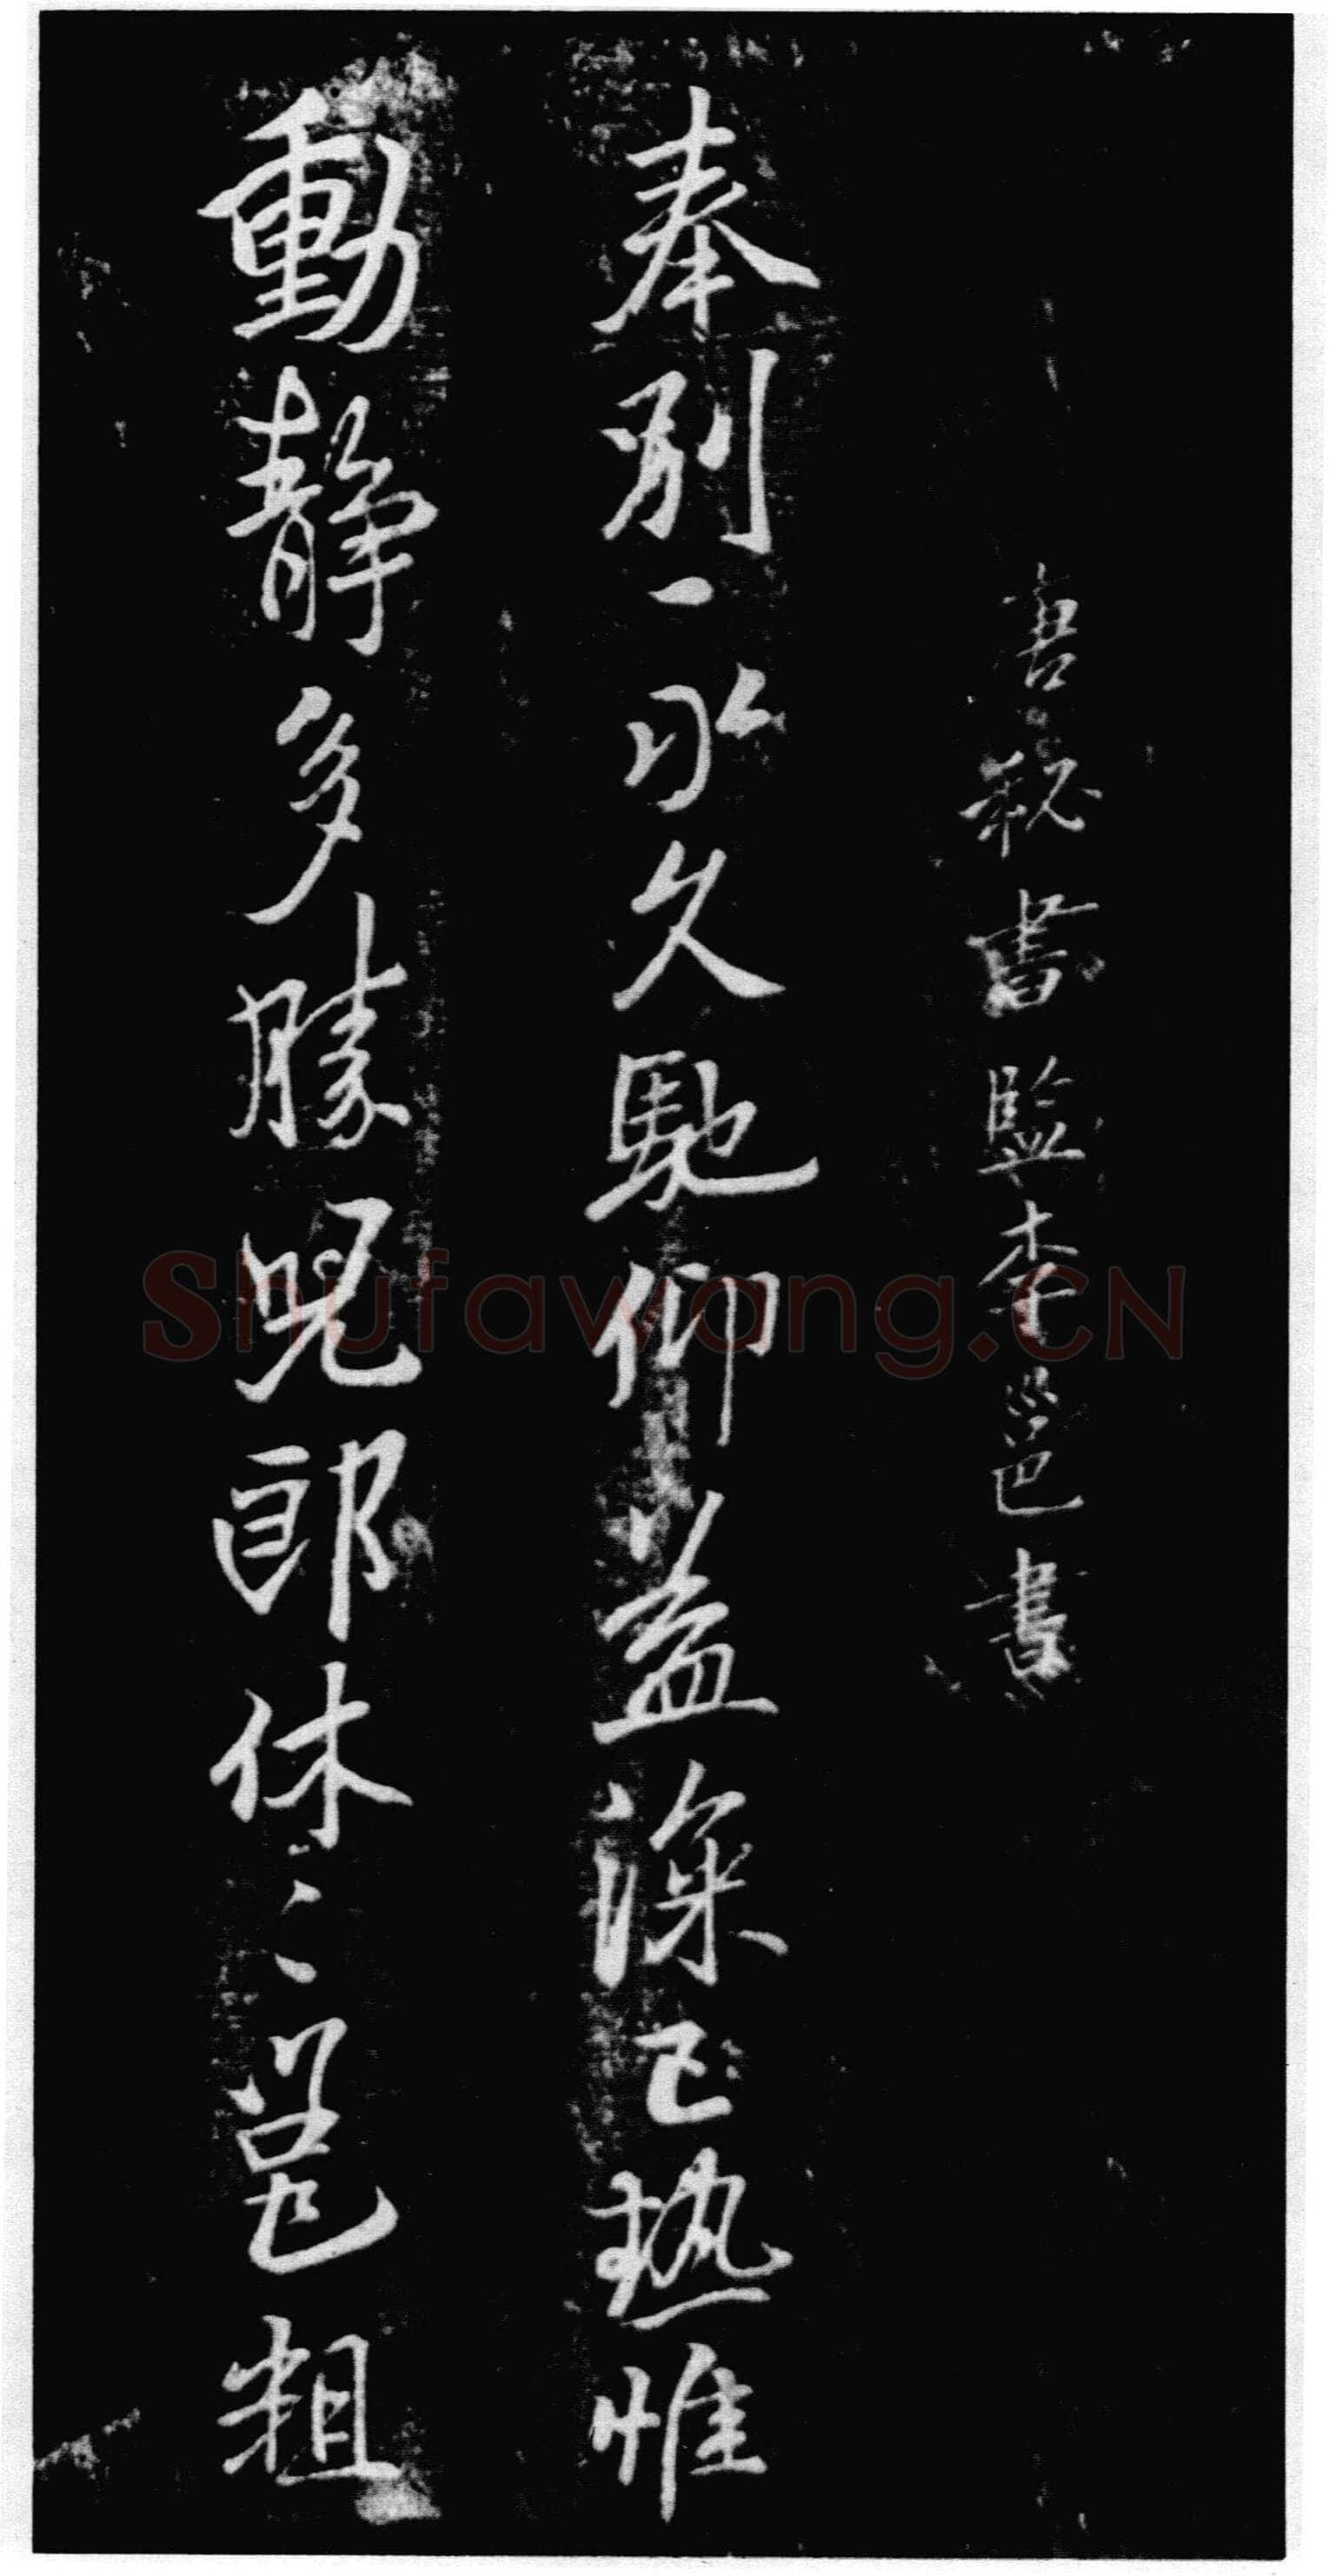 唐秘書監李邕書
奉別一所久馳仰益深已熱惟
動靜多勝兒郎休〻邕粗
Shufawang.CN